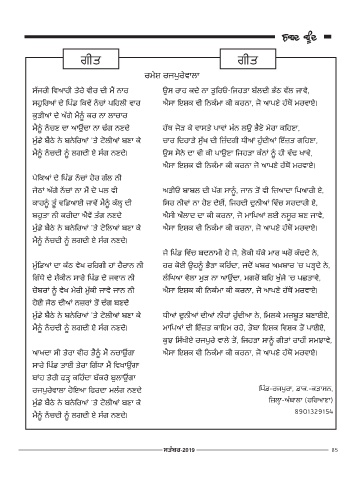 ਸ਼ਬਦ ਬੂੰਦ
ਗੀਤ
ਗੀਤ
ਰਮੇਸ਼ ਰਜਪੁਰੇਵਾਲਾ
ਸੱਜਰੀ ਵਿਆਹੀ ਤੇਰੇ ਵੀਰ ਦੀ ਮੈਂ ਨਾਰ
ਸਹੁਰਿਆਂ ਦੇ ਪਿੰਡ ਕਿਵੇਂ ਨੱਚਾਂ ਪਹਿਲੀ ਵਾਰ
ਕੁੜੀਆਂ ਦੇ ਅੱਗੇ ਮੈਨੂੰ ਕਰ ਨਾ ਲਾਚਾਰ
ਮੈਨੂੰ ਨੱਚਣ ਦਾ ਆਉਂਦਾ ਨਾ ਢੰਗ ਨਣਦੇ
ਮੁੰਡੇ ਬੈਠੇ ਨੇ ਬਨੇਰਿਆਂ 'ਤੇ ਟੋਲੀਆਂ ਬਣਾ ਕੇ
ਮੈਨੂੰ ਨੱਚਦੀ ਨੂੰ ਲਗਦੀ ਏ ਸੰਗ ਨਣਦੇ।
ਪੇਕਿਆਂ ਦੇ ਪਿੰਡ ਨੱਚਾਂ ਹੋਰ ਗੱਲ ਨੀ
ਜੇਠਾਂ ਅੱਗੇ ਨੱਚਾਂ ਨਾ ਮੈਂ ਦੋ ਪਲ ਵੀ
ਕਾਹਨੂੰ ਤੂੰ ਵਡਿਆਈ ਜਾਵੇਂ ਮੈਨੂੰ ਕੱਲ੍ਹ ਦੀ
ਬਹੁਤਾ ਨੀ ਕਰੀਦਾ ਐਵੇਂ ਤੰਗ ਨਣਦੇ
ਮੁੰਡੇ ਬੈਠੇ ਨੇ ਬਨੇਰਿਆਂ 'ਤੇ ਟੋਲੀਆਂ ਬਣਾ ਕੇ
ਮੈਨੂੰ ਨੱਚਦੀ ਨੂੰ ਲਗਦੀ ਏ ਸੰਗ ਨਣਦੇ।
ਮੁੰਡਿਆਂ ਦਾ ਕੱਠ ਵੇਖ ਰਹਿਗੀ ਹਾਂ ਹੈਰਾਨ ਨੀ
ਗਿੱਧੇ ਦੇ ਸ਼ੌਕੀਨ ਸਾਰੇ ਪਿੰਡ ਦੇ ਜਵਾਨ ਨੀ
ਚੋਬਰਾਂ ਨੂੰ ਵੇਖ ਮੇਰੀ ਮੁੱਕੀ ਜਾਵੇ ਜਾਨ ਨੀ
ਹੋਈ ਜੇਠ ਦੀਆਂ ਨਜ਼ਰਾਂ ਤੋਂ ਦੰਗ ਬਣਦੇ
ਮੁੰਡੇ ਬੈਠੇ ਨੇ ਬਨੇਰਿਆਂ 'ਤੇ ਟੋਲੀਆਂ ਬਣਾ ਕੇ
ਮੈਨੂੰ ਨੱਚਦੀ ਨੂੰ ਲਗਦੀ ਏ ਸੰਗ ਨਣਦੇ।
ਆਖਦਾ ਸੀ ਤੇਰਾ ਵੀਰ ਤੈਨੂੰ ਮੈਂ ਨਚਾਉਂਗਾ
ਸਾਰੇ ਪਿੰਡ ਤਾਈਂ ਤੇਰਾ ਗਿੱਧਾ ਮੈਂ ਵਿਖਾਉਂਗਾ
ਬਾਂਹ ਤੇਰੀ ਫੜ੍ਹ ਕਹਿੰਦਾ ਬੱਕਰੇ ਬੁਲਾਉਂਗਾ
ਰਜਪੁਰੇਵਾਲਾ ਹੋਇਆ ਫਿਰਦਾ ਮਲੰਗ ਨਣਦੇ
ਮੁੰਡੇ ਬੈਠੇ ਨੇ ਬਨੇਰਿਆਂ 'ਤੇ ਟੋਲੀਆਂ ਬਣਾ ਕੇ
ਮੈਨੂੰ ਨੱਚਦੀ ਨੂੰ ਲਗਦੀ ਏ ਸੰਗ ਨਣਦੇ।
ਉਸ ਰਾਹ ਕਦੇ ਨਾ ਤੁਰਿਓ-ਜਿਹੜਾ ਬੰਲਦੀ ਭੱਠ ਵੱਲ ਜਾਵੇ,
ਐਸਾ ਇਸ਼ਕ ਵੀ ਨਿਕੰਮਾ ਕੀ ਕਰਨਾ, ਜੋ ਆਪਣੇ ਹੱਥੋਂ ਮਰਵਾਏ।
ਹੱਥ ਜੋੜ ਕੇ ਵਾਸਤੇ ਪਾਵਾਂ ਮੰਨ ਲਉ ਭੈਣੋਂ ਮੇਰਾ ਕਹਿਣਾ,
ਚਾਰ ਦਿਹਾੜੇ ਸੁੱਖ ਦੀ ਜ਼ਿੰਦਗੀ ਧੀਆਂ ਹੁੰਦੀਆਂ ਇੱਜ਼ਤ ਗਹਿਣਾ,
ਉਸ ਸੋਨੇ ਦਾ ਵੀ ਕੀ ਪਾਉਣਾ ਜਿਹੜਾ ਕੰਨਾਂ ਨੂੰ ਹੀ ਵੱਢ ਖਾਵੇ,
ਐਸਾ ਇਸ਼ਕ ਵੀ ਨਿਕੰਮਾ ਕੀ ਕਰਨਾ ਜੋ ਆਪਣੇ ਹੱਥੋਂ ਮਰਵਾਏ।
ਅੜੀਓ ਬਾਬਲ ਦੀ ਪੱਗ ਸਾਨੂੰ, ਜਾਨ ਤੋਂ ਵੀ ਜ਼ਿਆਦਾ ਪਿਆਰੀ ਏ,
ਸਿਰ ਨੀਵਾਂ ਨਾ ਹੋਣ ਦੇਈਂ, ਜਿਹੜੀ ਦੁਨੀਆਂ ਵਿੱਚ ਸਰਦਾਰੀ ਏ,
ਐਸੀ ਔਲਾਦ ਦਾ ਕੀ ਕਰਨਾ, ਜੋ ਮਾਪਿਆਂ ਲਈ ਨਸੂਰ ਬਣ ਜਾਵੇ,
ਐਸਾ ਇਸ਼ਕ ਵੀ ਨਿਕੰਮਾ ਕੀ ਕਰਨਾ, ਜੋ ਆਪਣੇ ਹੱਥੋਂ ਮਰਵਾਏ।
ਜੇ ਪਿੰਡ ਵਿੱਚ ਬਦਨਾਮੀ ਹੋ ਜੇ, ਲੋਕੀ ਧੱਕੇ ਮਾਰ ਘਰੋਂ ਕੱਢਦੇ ਨੇ,
ਹਰ ਕੋਈ ਉਹਨੂੰ ਭੈੜਾ ਕਹਿੰਦਾ, ਜਦੋਂ ਖ਼ਬਰ ਅਖ਼ਬਾਰ 'ਚ ਪੜ੍ਹਦੇ ਨੇ,
ਲੰਘਿਆ ਵੇਲਾ ਮੁੜ ਨਾ ਆਉਂਦਾ, ਮਗਰੋਂ ਬਹਿ ਖੂੰਜੇ 'ਚ ਪਛਤਾਵੇ,
ਐਸਾ ਇਸ਼ਕ ਵੀ ਨਿਕੰਮਾ ਕੀ ਕਰਨਾ, ਜੋ ਆਪਣੇ ਹੱਥੋਂ ਮਰਵਾਏ।
ਧੀਆਂ ਦੁਨੀਆਂ ਦੀਆਂ ਨੀਹਾਂ ਹੁੰਦੀਆਂ ਨੇ, ਮਿਲਕੇ ਮਜ਼ਬੂਤ ਬਣਾਈਏ,
ਮਾਪਿਆਂ ਦੀ ਇੱਜ਼ਤ ਕਾਇਮ ਰਹੇ, ਤੋਬਾ ਇਸ਼ਕ ਵਿਸ਼ਕ ਤੋਂ ਪਾਈਏ,
ਕੁਝ ਸਿੱਖੀਏ ਰਜਪੁਰੇ ਵਾਲੇ ਤੋਂ, ਜਿਹੜਾ ਸਾਨੂੰ ਗੀਤਾਂ ਰਾਹੀਂ ਸਮਝਾਵੇ,
ਐਸਾ ਇਸ਼ਕ ਵੀ ਨਿਕੰਮਾ ਕੀ ਕਰਨਾ, ਜੋ ਆਪਣੇ ਹੱਥੋਂ ਮਰਵਾਏ।
ਪਿੰਡ-ਰਜਪੁਰਾ, ਡਾਕ.-ਕੜਾਸਨ,
ਜ਼ਿਲ੍ਹਾ-ਅੰਬਾਲਾ (ਹਰਿਆਣਾ)
8901329154
ਸਤੰਬਰ-2019
85